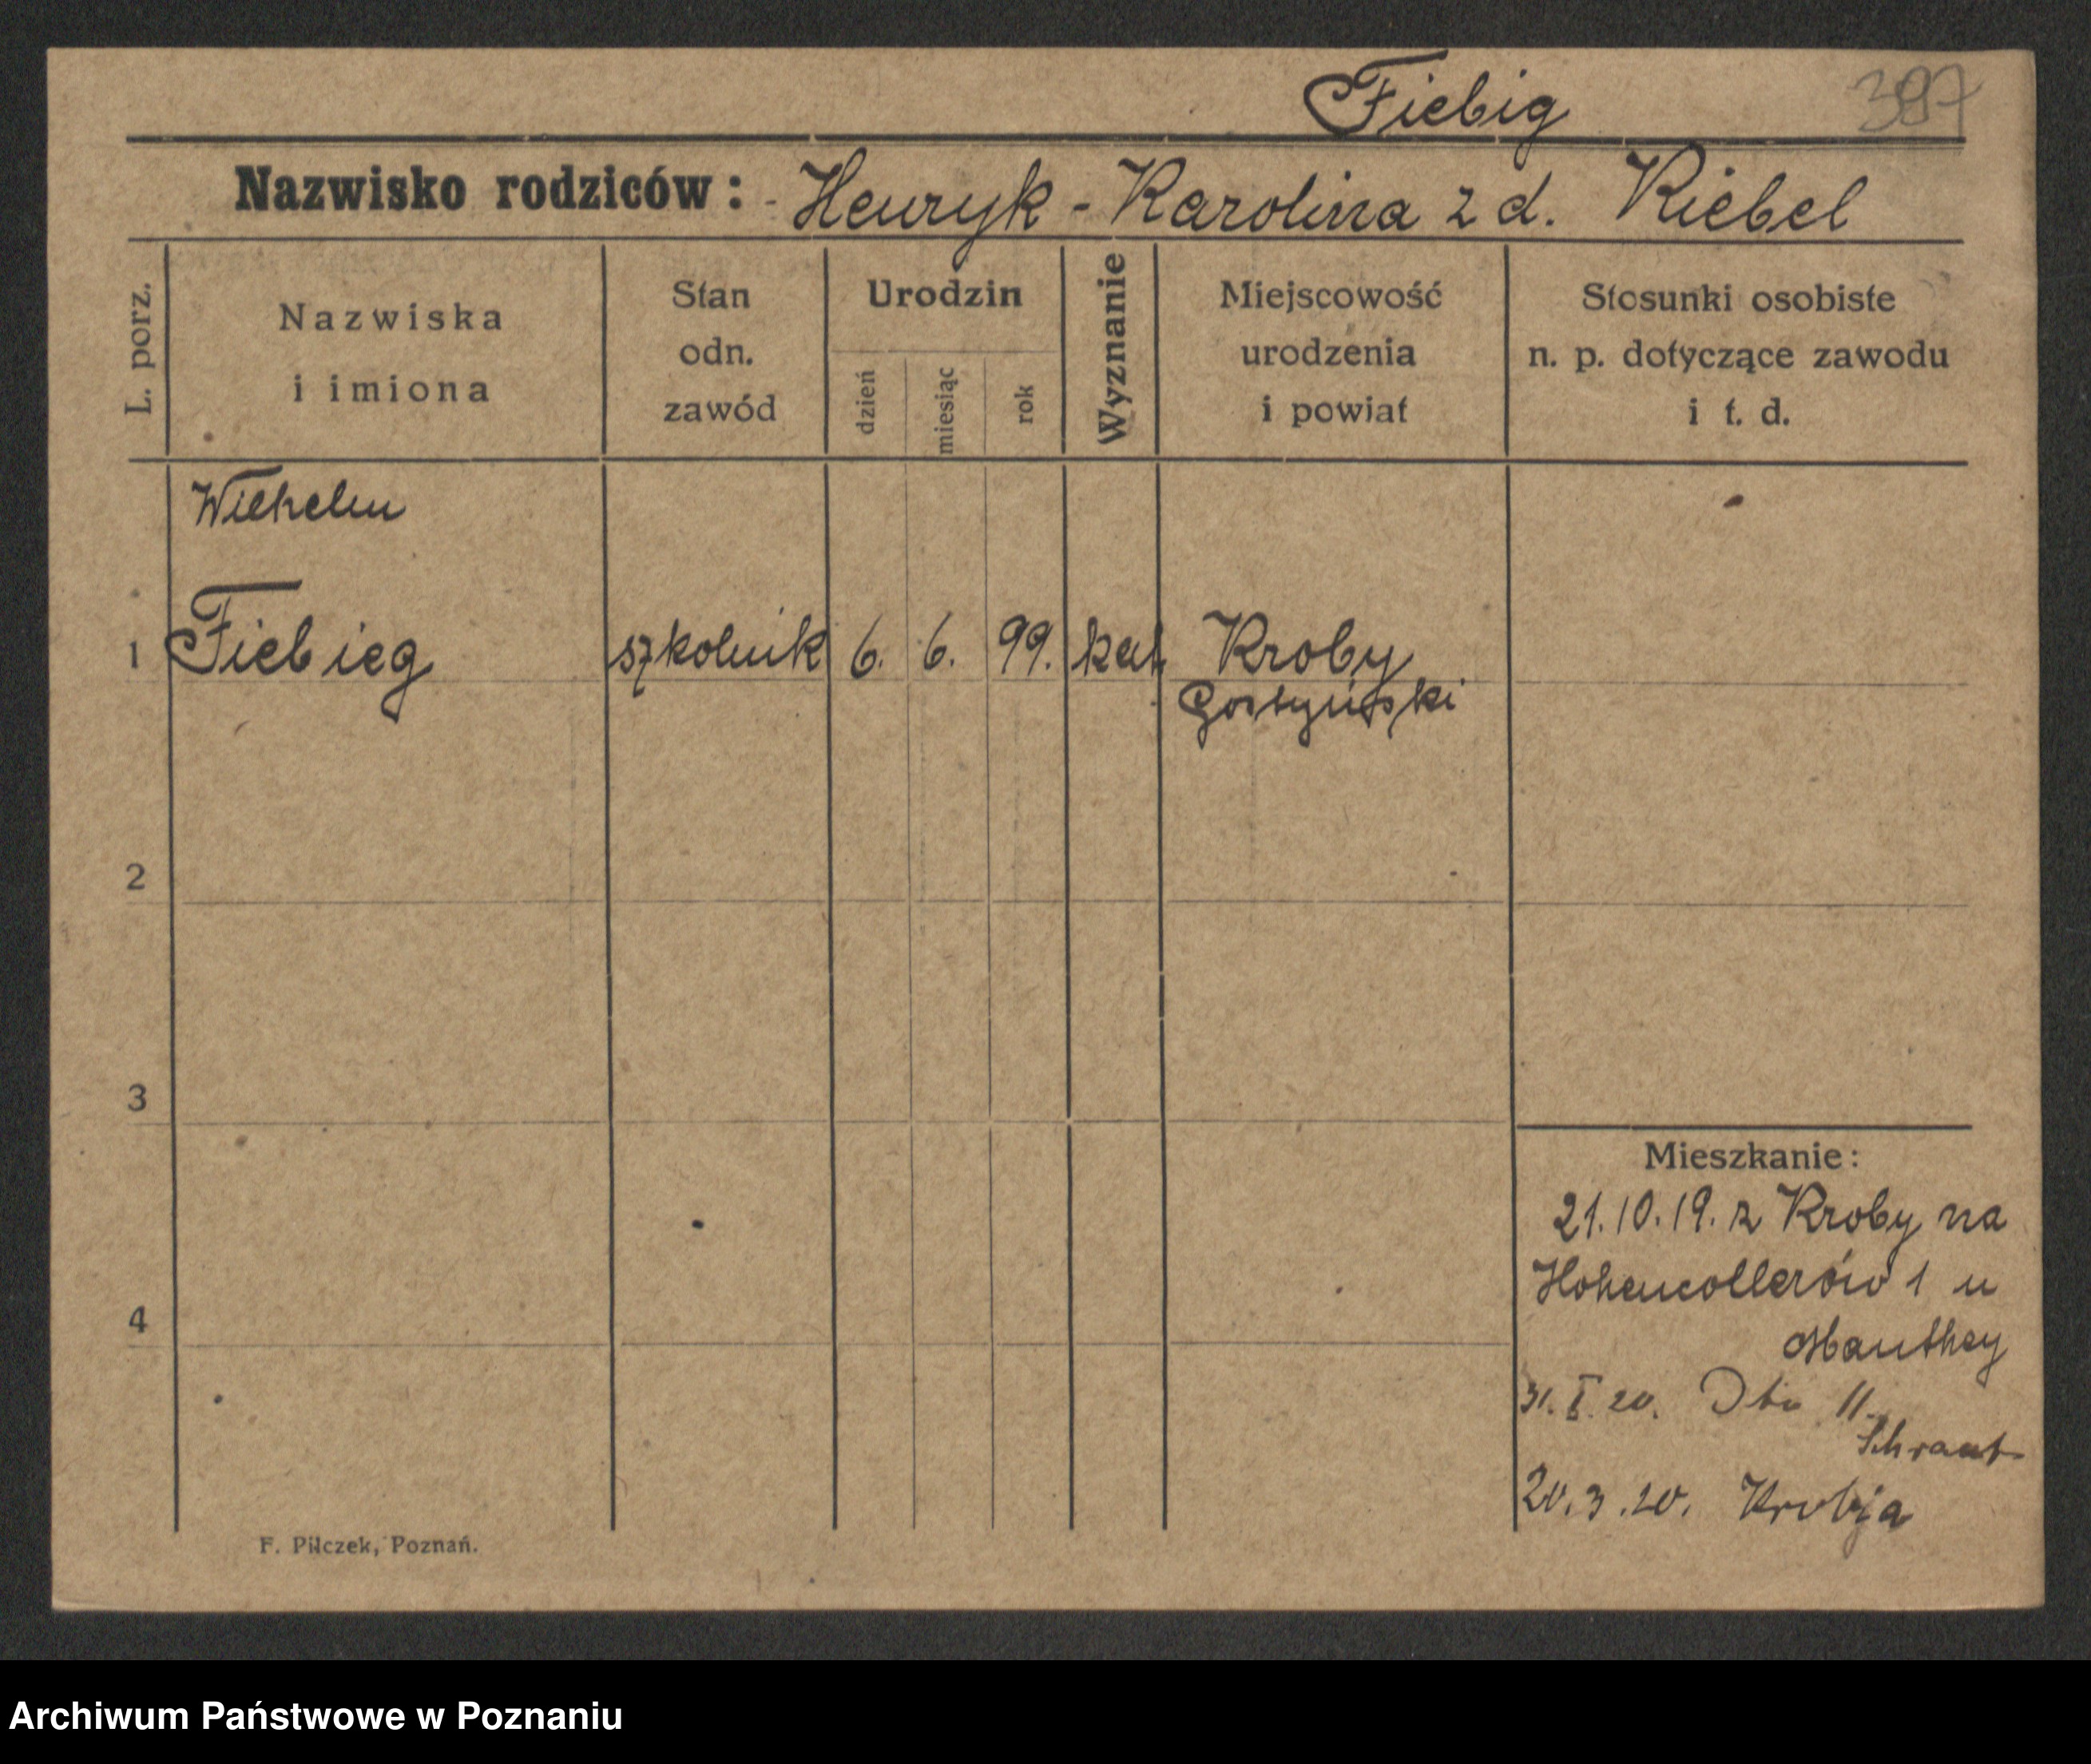 Fiebig 387
Nazwisko rodziców: - Henryk - Karolina z d. Riebel
L. porz.
Nazwiska
i imiona
Stan
odn.
zawód
Urodzin
dzień
miesiąc
rok
Wyznanie
Miejscowość
urodzenia
i powiat
Stosunki osobiste
n. p. dotyczące zawodu
i t. d.
Wilhelm
1 Fiebieg szkolnik 6. 6. 99. kat. Kroby
Gostyński
2
3
4
Mieszkanie:
21.10.19. z Kroby na
Hohencollerów 1 u
Manthey
31. I. 20. 11.
20.3.20. Krobja
F. Pilczek, Poznań.
Archiwum Państwowe w Poznaniu